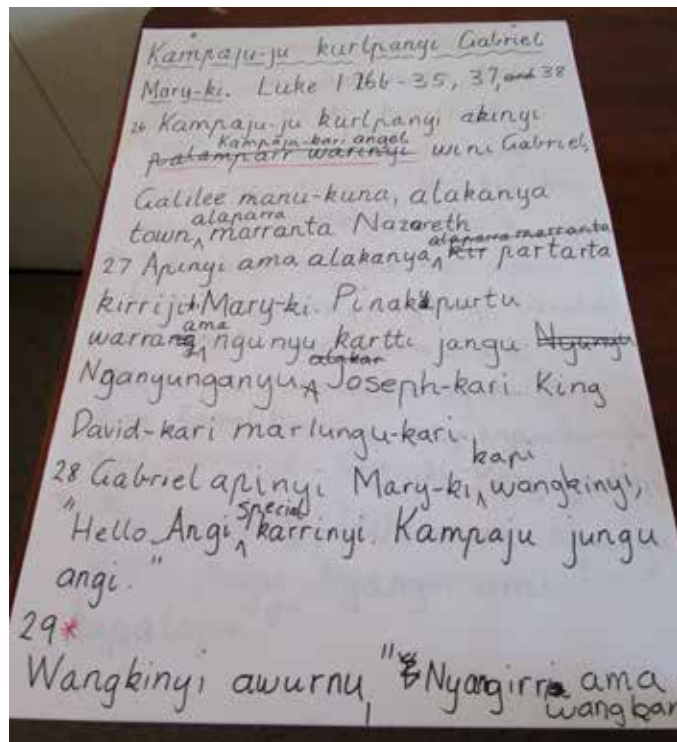 Kampaju-ju kurlpanyi Gabriel
Mary-ki. Luke 1 26b-35, 37, and 38
26 Kampaju-ju kurlpanyi akinyi
Kampaju-kari angel
palamparr warinyi wini Gabriel,
Galilee manu-kuna, alakanya
alaparra
town, marranta Nazareth
alaparra marranta
27 Apinyi ama alakanya kir partarta
kirriji Mary-ki. Pinaka purtu
ama
warrang ngunyu kartti jangu
alakar
Nganyunganyu Joseph-kari King
David-kari marlungu-kari.
kapi
28 Gabriel apinyi Mary-ki, wangkinyi,
special
"Hello Angi karrinyi. Kampaju jungu
angi."
29*
Wangkinyi awurnu, "Nyangirri ama
wangkar